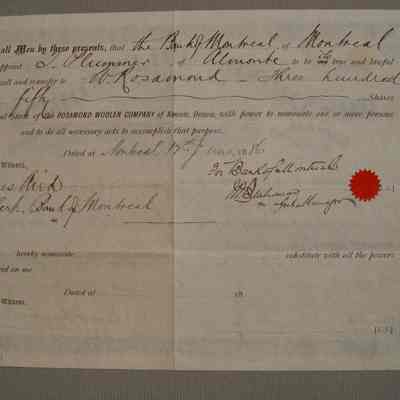 all Men by these presents, that the Bank of Montreal of Montreal
appoint J. Plummer of Almonte to be true and lawful
sell and transfer to W. Rosamond Three hundred
fifty Shares
stock of the ROSAMOND WOOLEN COMPANY of Almonte, Ontario, with power to nominate one or more persons
and to do all necessary acts to accomplish that purpose.
Dated at Montreal 17th 1886
Witness. For Bank of Montreal
Reid
Clerk, Bank of Montreal Manager
hereby nominate substitute with all the powers
red on me
Dated at 18
Witness.
[L.S.]